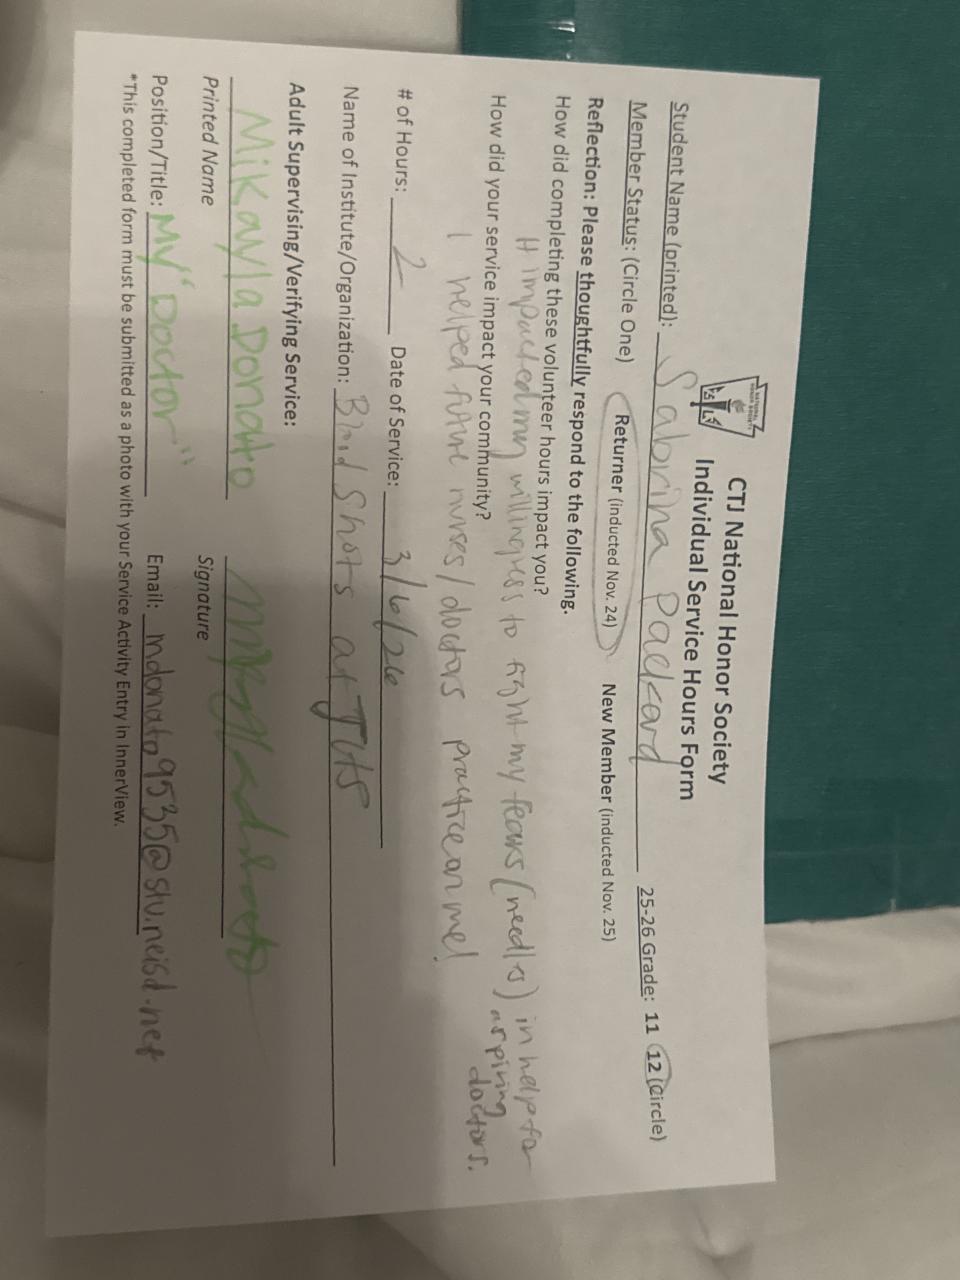 CTJ National Honor Society
Individual Service Hours Form
Student Name (printed): Sabrina Packard 25-26 Grade: 11 12 (Circle)
Member Status: (Circle One) Returner (inducted Nov. 24) New Member (inducted Nov. 25)
Reflection: Please thoughtfully respond to the following.
How did completing these volunteer hours impact you?
It impacted my willingness to fight my fears (needles) in help for
aspiring
doctors.
How did your service impact your community?
I helped future nurses/doctors practice on me!
# of Hours: 2 Date of Service: 3/6/26
Name of Institute/Organization: Blood Shots at
Adult Supervising/Verifying Service:
Mikayla Donato
Printed Name Signature
Position/Title: My "Doctor" Email: mdonato9535@stu.neisd.net
*This completed form must be submitted as a photo with your Service Activity Entry in InnerView.